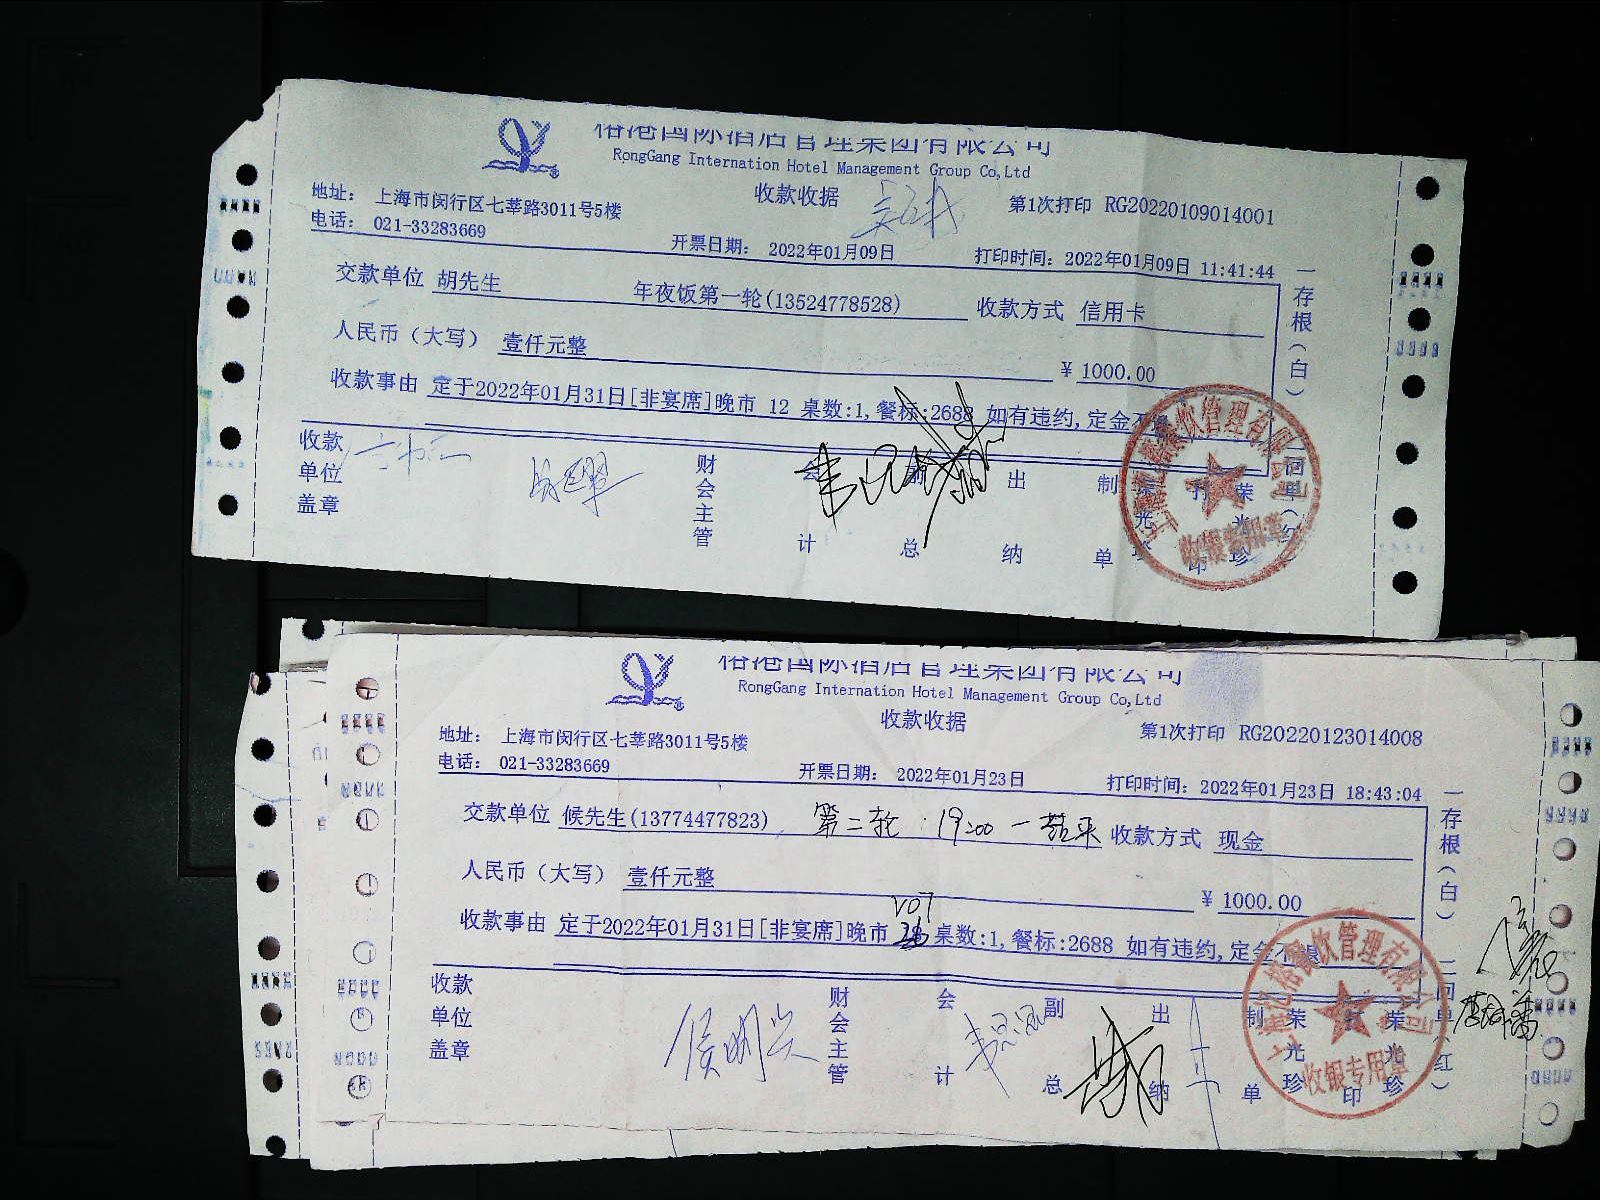 榕港国际酒店管理集团有限公司
RongGang Internation Hotel Management Group Co,Ltd
收款收据
第1次打印 RG20220109014001
地址: 上海市闵行区七莘路3011号5楼
电话: 021-33283669
开票日期: 2022年01月09日
打印时间: 2022年01月09日 11:41:44
交款单位 胡先生 年夜饭第一轮(13524778528) 收款方式 信用卡
人民币（大写） 壹仟元整
¥ 1000.00
收款事由 定于2022年01月31日[非宴席]晚市 12 桌数:1,餐标:2688 如有违约,定金不
一存根(白)
回单(红
收款单位盖章
财会主管
会计
副总
出纳
制单 荣光珍
打印 荣光珍
餐饮管理有限公司
收银专用章
榕港国际酒店管理集团有限公司
RongGang Internation Hotel Management Group Co,Ltd
收款收据
第1次打印 RG20220123014008
地址: 上海市闵行区七莘路3011号5楼
电话: 021-33283669
开票日期: 2022年01月23日
打印时间: 2022年01月23日 18:43:04
交款单位 候先生(13774477823) 第二轮 19:00 收款方式 现金
人民币（大写） 壹仟元整
¥ 1000.00
V07
收款事由 定于2022年01月31日[非宴席]晚市 桌数:1,餐标:2688 如有违约,定金不
一存根(白)
二回单(红)
收款单位盖章
侯明兴
财会主管
会计
副总
出纳
制单 荣光珍
打印 荣光珍
餐饮管理有限公司
收银专用章